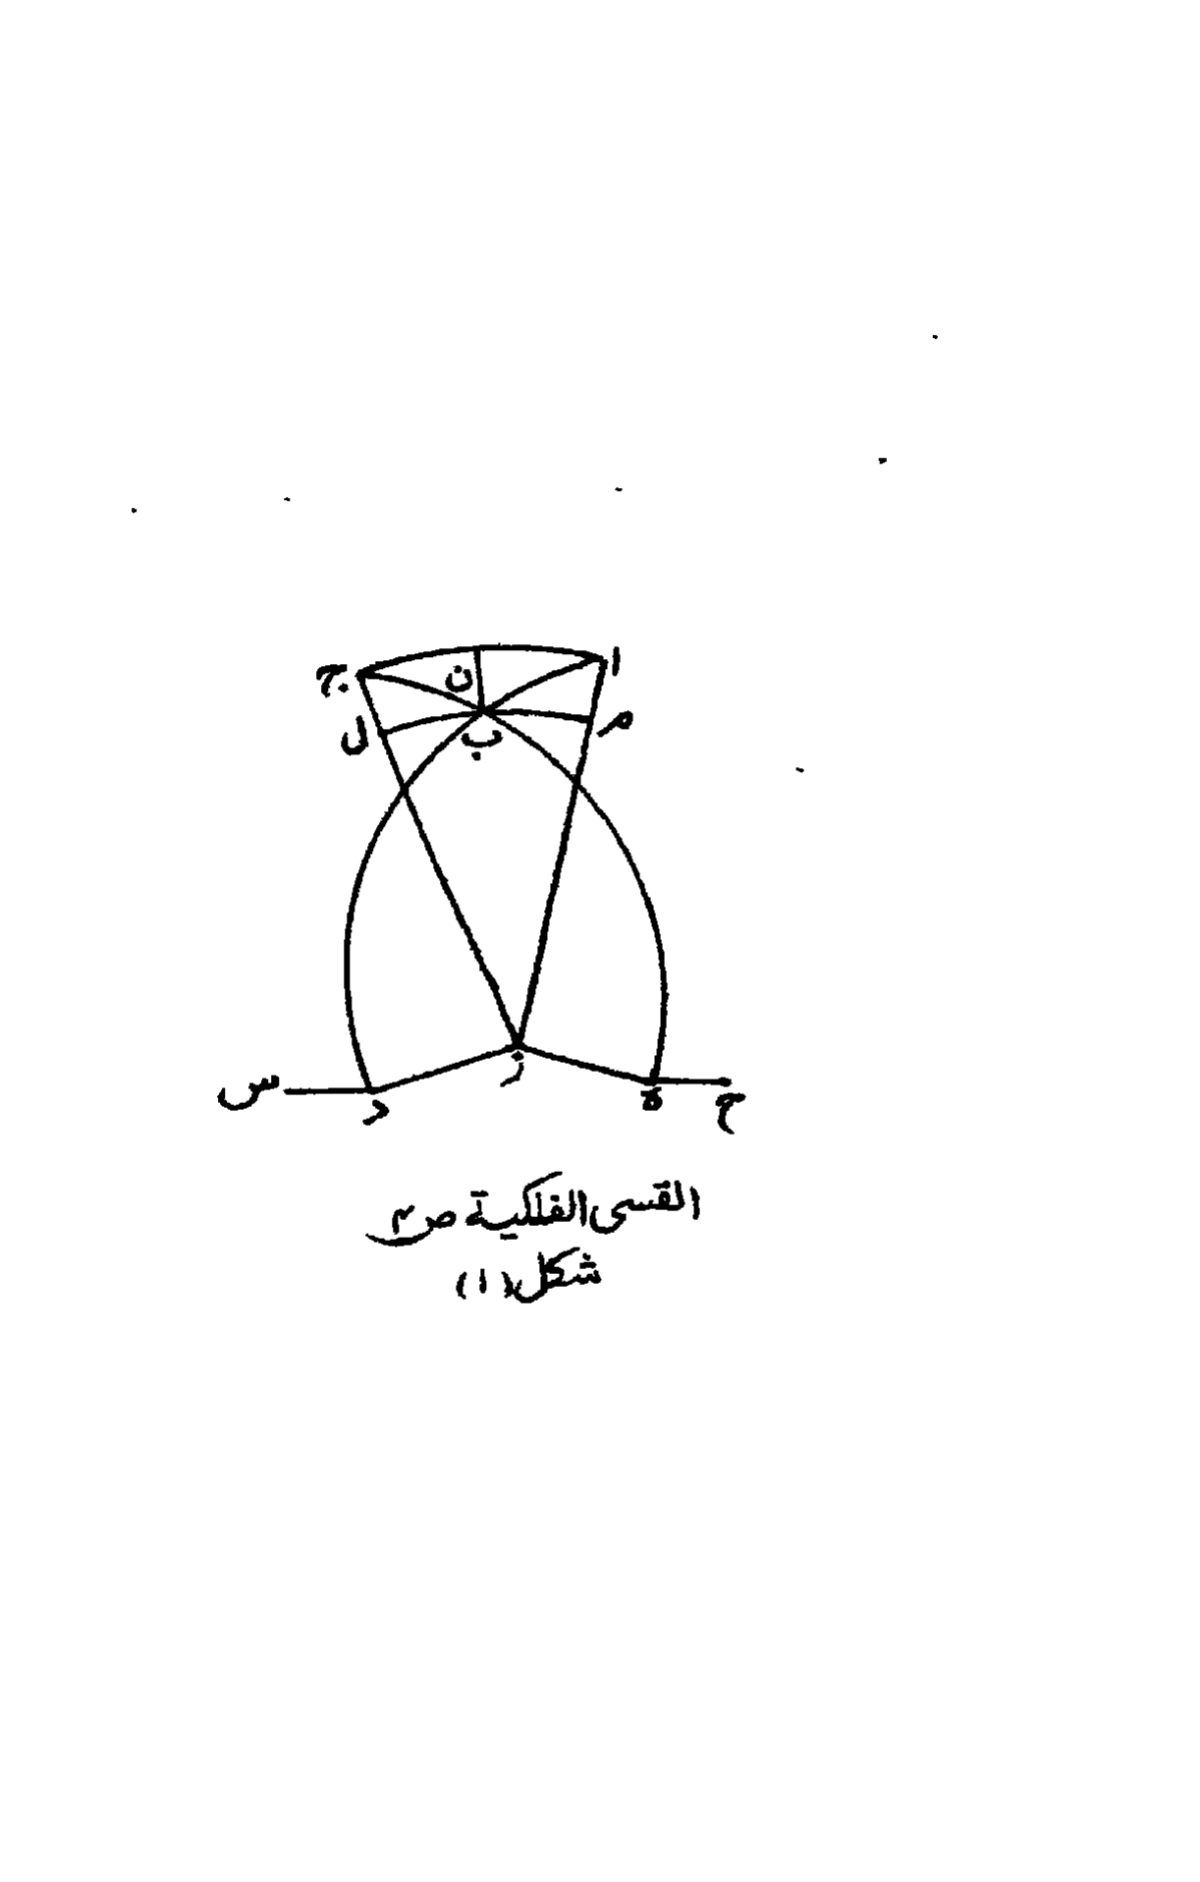 ا
ج
ن
م
ل
ب
ز
س
د
ه
ح
القسى الفلكية ص
شكل (١)